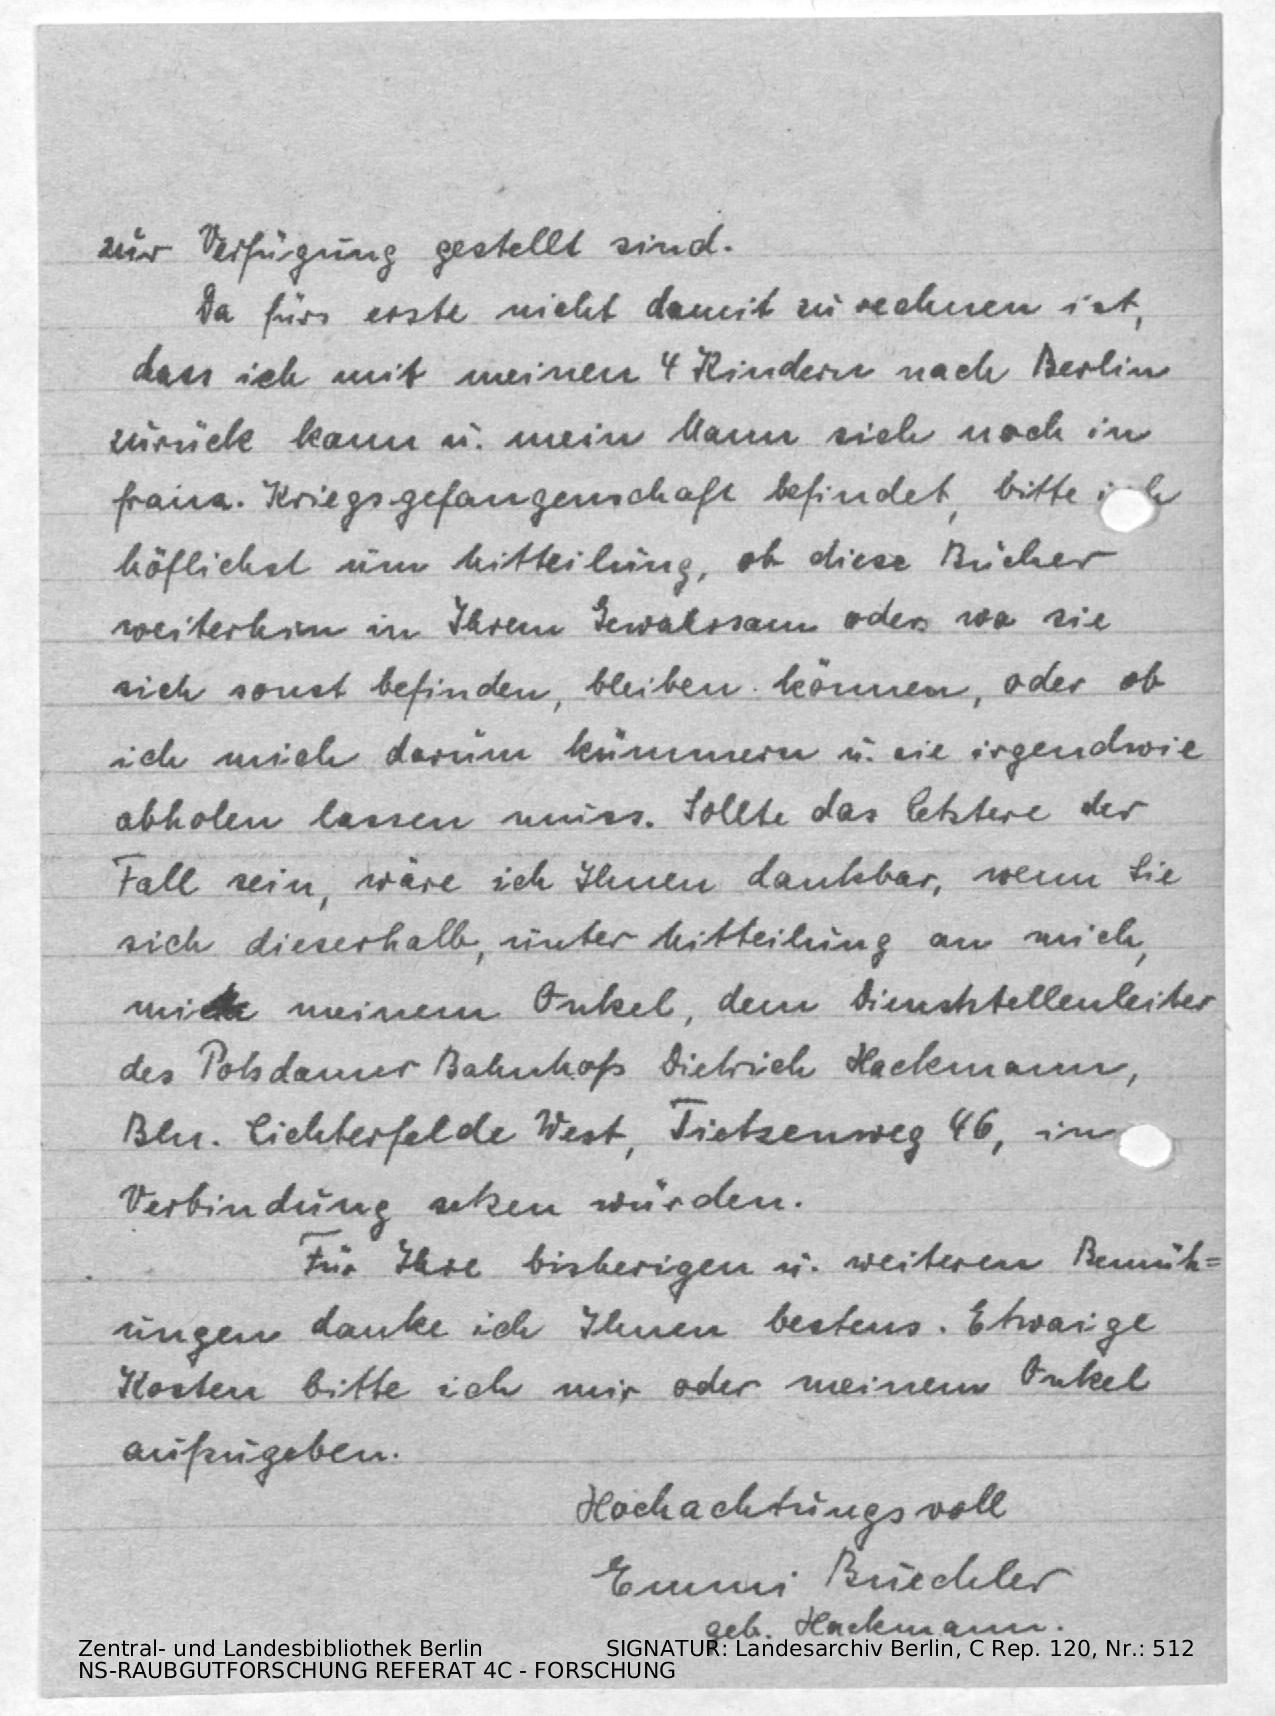 zur Verfügung gestellt sind.
Da fürs erste nicht damit zu rechnen ist,
dass ich mit meinen 4 Kindern nach Berlin
zurück kann u. mein Mann sich noch in
franz. Kriegsgefangenschaft befindet, bitte ich
höflichst um Mitteilung, ob diese Bücher
weiterhin in Ihrem Gewahrsam oder wo sie
sich sonst befinden, bleiben können, oder ob
ich mich darum kümmern u. sie irgendwie
abholen lassen muss. Sollte das letztere der
Fall sein, wäre ich Ihnen dankbar, wenn Sie
sich dieserhalb, unter Mitteilung an mich,
mit meinem Onkel, dem Dienststellenleiter
des Potsdamer Bahnhofs Dietrich Hackmann,
Bln. Lichterfelde West, Tietzenweg 46, in
Verbindung setzen würden.
Für Ihre bisherigen u. weiteren Bemüh=
ungen danke ich Ihnen bestens. Etwaige
Kosten bitte ich mir oder meinem Onkel
aufzugeben.
Hochachtungsvoll
Emmi Buechler
geb. Hackmann.
Zentral- und Landesbibliothek Berlin SIGNATUR: Landesarchiv Berlin, C Rep. 120, Nr.: 512
NS-RAUBGUTFORSCHUNG REFERAT 4C - FORSCHUNG